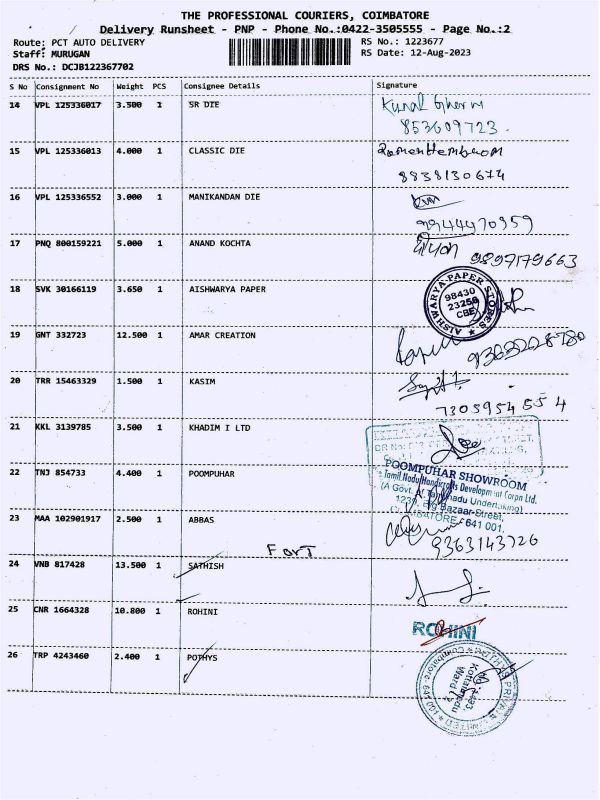 THE PROFESSIONAL COURIERS, COIMBATORE
Delivery Runsheet - PNP - Phone No.:0422-3505555 - Page No.:2
Route: PCT AUTO DELIVERY RS No.: 1223677
Staff: MURUGAN RS Date: 12-Aug-2023
DRS No.: DCJB122367702
S No Consignment No Weight PCS Consignee Details Signature
14 VPL 125336017 3.500 1 SR DIE
853609723
15 VPL 125336013 4.000 1 CLASSIC DIE
8838130674
16 VPL 125336552 3.000 1 MANIKANDAN DIE
9944470959
17 PNQ 800159221 5.000 1 ANAND KOCHTA
9897179663
18 SVK 30166119 3.650 1 AISHWARYA PAPER
AISHWARYA PAPER STORES
98430
23258
CBE
19 GNT 332723 12.500 1 AMAR CREATION
20 TRR 15463329 1.500 1 KASIM
7305954554
21 KKL 3139785 3.500 1 KHADIM I LTD
22 TNJ 854733 4.400 1 POOMPUHAR
POOMPUHAR SHOWROOM
Tamil Nadu Handicrafts Development Corpn Ltd.
(A Govt. of Tamilnadu Undertaking)
Big Bazaar Street,
COIMBATORE - 641 001.
23 MAA 102901917 2.500 1 ABBAS
9363143726
FORT
24 VNB 817428 13.500 1 SATHISH
25 CNR 1664328 10.800 1 ROHINI
ROHINI
26 TRP 4243460 2.400 1 POTHYS